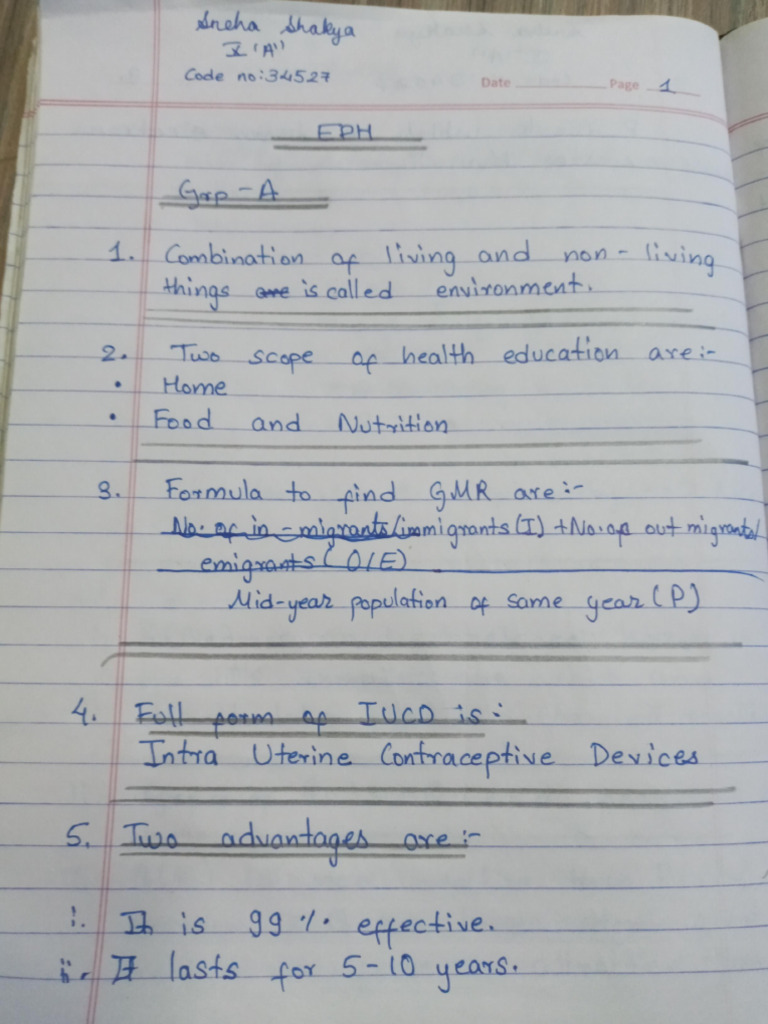 Sneha Shakya
X "A"
Code no:34527
Date Page 1
EPH
Grp-A
1. Combination of living and non-living
things are is called environment.
2. Two scope of health education are:-
• Home
• Food and Nutrition
3. Formula to find GMR are:-
No. of in-migrants/immigrants(I) + No. of out migrants/
emigrants (O/E)
Mid-year population of same year (P)
4. Full form of IUCD is:
Intra Uterine Contraceptive Devices
5. Two advantages are:-
i. It is 99% effective.
ii. It lasts for 5-10 years.